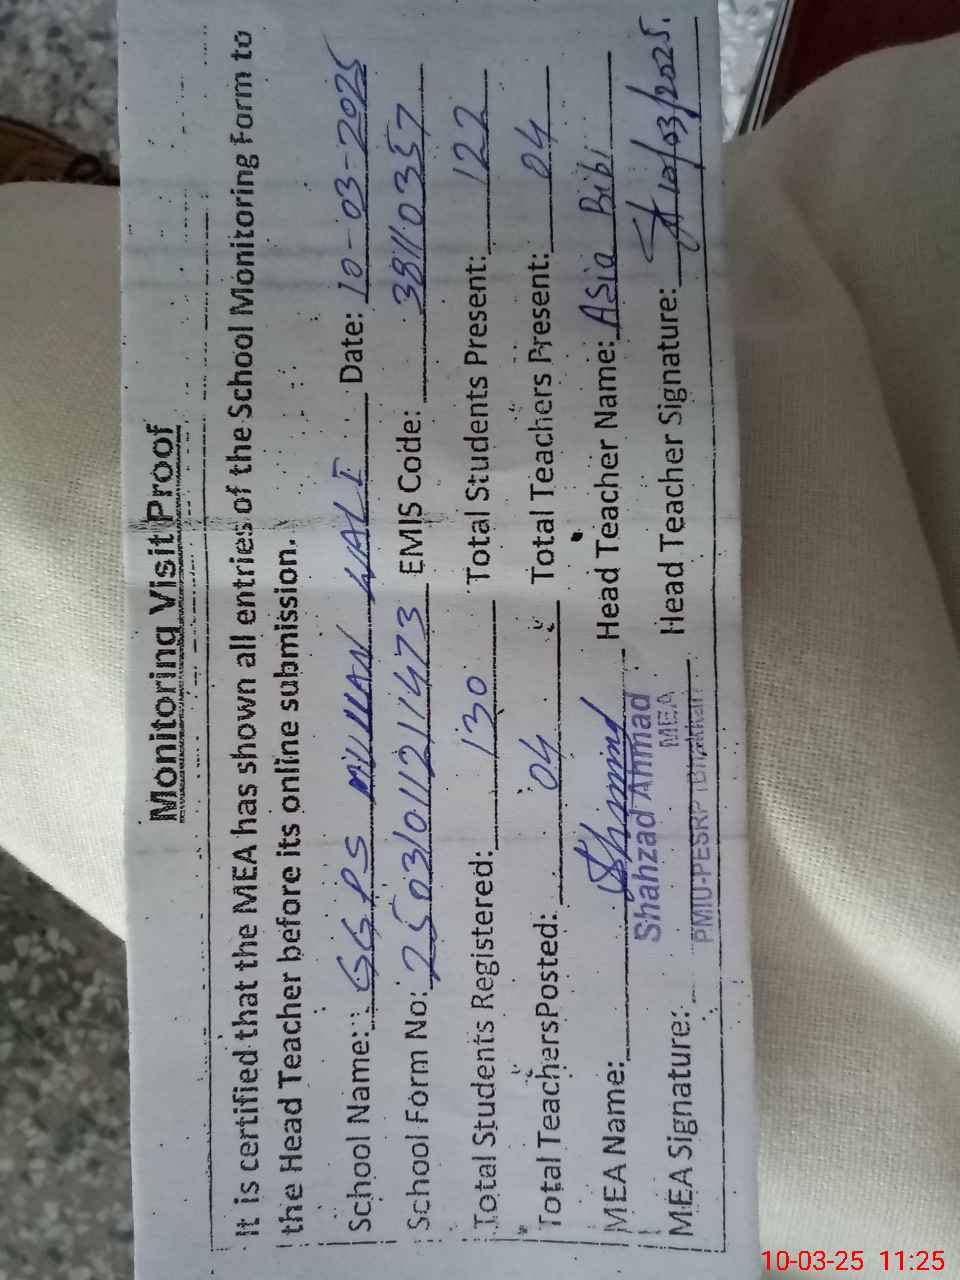 Monitoring Visit Proof
It is certified that the MEA has shown all entries of the School Monitoring Form to
the Head Teacher before its online submission.
School Name: GGPS MILLIAN WALI Date: 10-03-2025
School Form No: 2503101121/1473 EMIS Code: 38110357
Total Students Registered: 130 Total Students Present: 122
Total Teachers Posted: 04 Total Teachers Present: 04
MEA Name: Head Teacher Name: Asia Bibi
Shahzad Ahmad
MEA
MEA Signature: Head Teacher Signature: 10/03/2025.
PMIU-PESRP (Bhakkar)
10-03-25 11:25